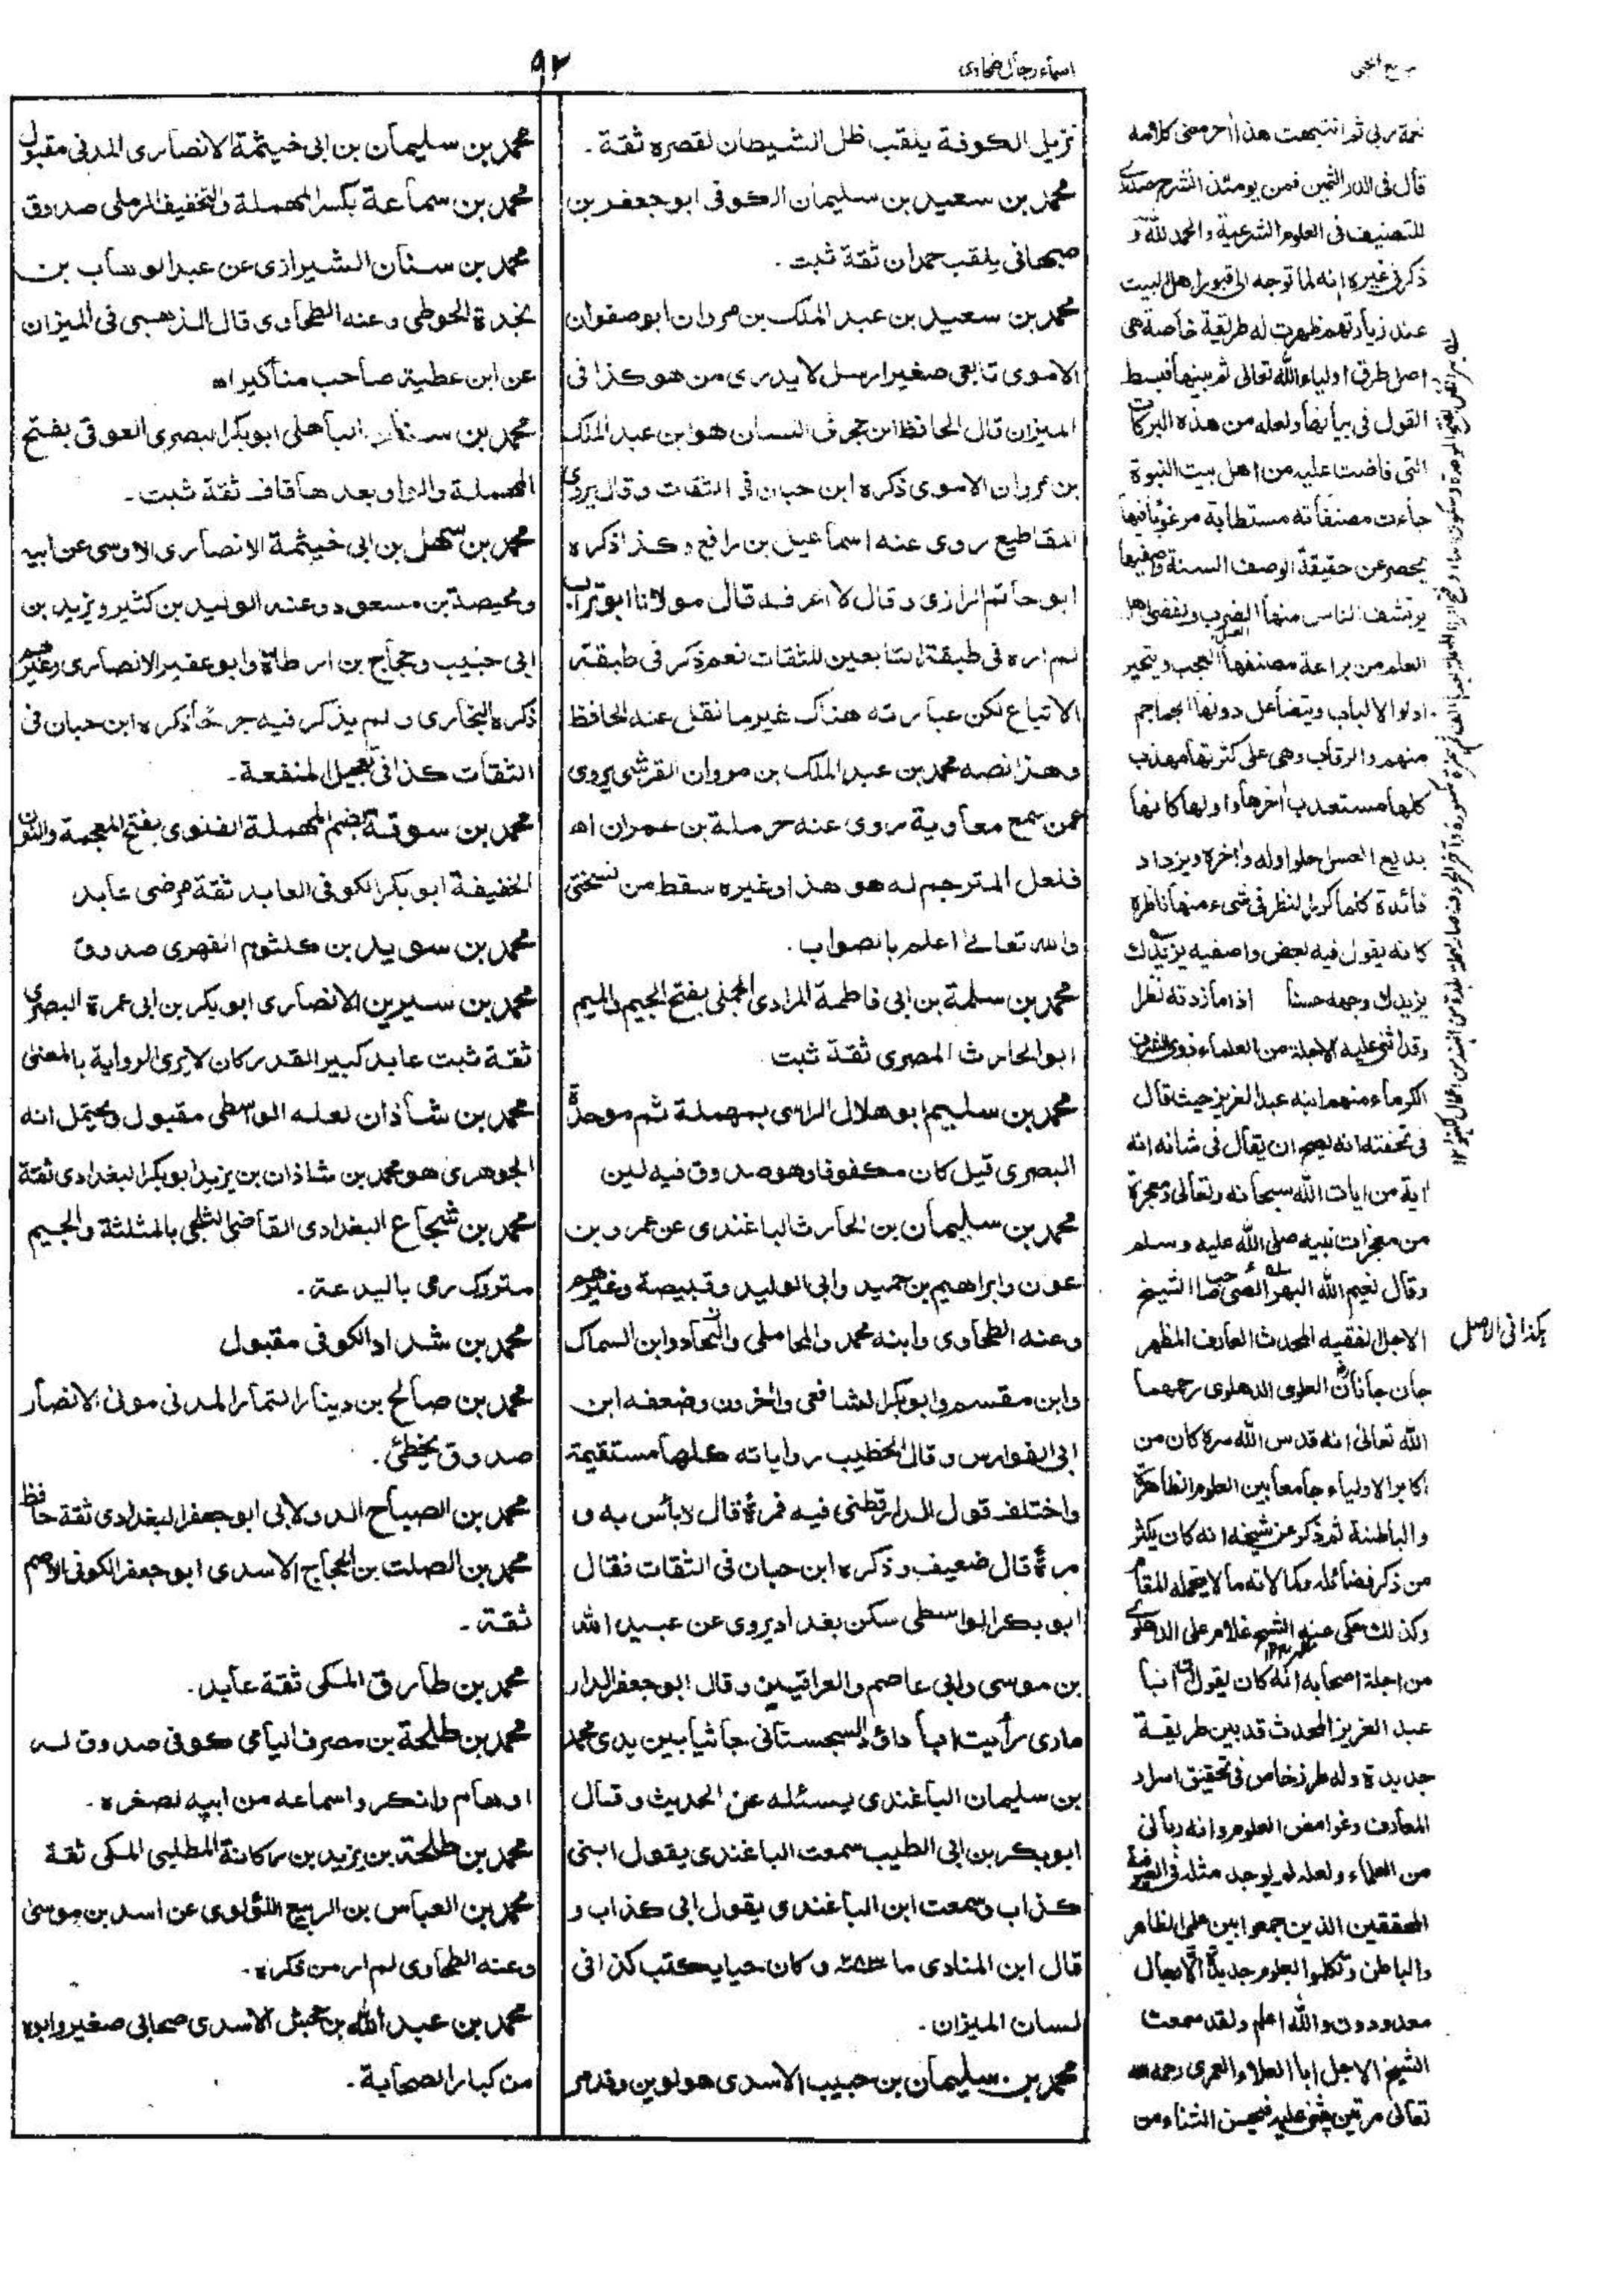 ٩٢
اسماء رجال طحاوی
نزيل الكوفة يلقب ظل الشيطان لقصره ثقة ۔
محمد بن سعيد بن سليمان الكوفى ابو جعفر بن
صبهانى يلقب حمدان ثقة ثبت ۔
محمد بن سعيد بن عبد الملك بن مروان ابو صفوان
الاموى تابعى صغير ارسل لا يدرى من هو كذا فى
الميزان قال الحافظ ابن حجر فى اللسان هو ابن عبد الملك
بن مروان الاموى ذكره ابن حبان فى الثقات وقال يروى
المقاطيع روى عنه اسماعيل بن رافع وكذا ذكره
ابو حاتم الرازى وقال لا اعرفه قال مولانا ابو تراب
لم اره فى طبقة التابعين للثقات نعم ذكر فى طبقة
الاتباع لكن عبارته هناك غير ما نقل عنه الحافظ
وهذا نصه محمد بن عبد الملك بن مروان القرشى يروى
عمن سمع معاوية روى عنه حرملة بن عمران اه
فلعل المترجم له هو هذا او غيره سقط من نسختى
والله تعالى اعلم بالصواب ۔
محمد بن سلمة بن ابى فاطمة المرادى الجملى بفتح الجيم والميم
ابو الحارث المصرى ثقة ثبت
محمد بن سليم ابو هلال الراسى بمهملة ثم موحدة
البصرى قيل كان مكفوفا وهو صدوق فيه لين
محمد بن سليمان بن الحارث الباغندى عن عمرو بن
عون وابراهيم بن حميد وابى الوليد وقبيصة وغيرهم
وعنه الطحاوى وابنه محمد والمحاملى والنجاد وابن السماك
وابن مقسم وابو بكر الشافعى وآخرون وضعفه ابن
ابى الفوارس وقال الخطيب رواياته كلها مستقيمة
واختلف قول الدارقطنى فيه فمرة قال لا بأس به و
مرة قال ضعيف وذكره ابن حبان فى الثقات فقال
ابو بكر الواسطى سكن بغداد يروى عن عبيد الله
بن موسى وابى عاصم والعراقيين وقال ابو جعفر الدار
مادى رأيت ابا داؤد السجستانى جاثيا بين يدى محمد
بن سليمان الباغندى يسئله عن الحديث وقال
ابو بكر بن ابى الطيب سمعت الباغندى يقول ابنى
كذاب وسمعت ابن الباغندى يقول ابى كذاب و
قال ابن المنادى ما ٢٨٣ و كان حيا يكتب كذا فى
لسان الميزان ۔
محمد بن سليمان بن حبيب الاسدى هو لوين وقد مر
محمد بن سليمان بن ابى خيثمة الانصارى المدنى مقبول
محمد بن سماعة بكسر المهملة والتخفيف الرملى صدوق
محمد بن سنان الشيرازى عن عبد الوهاب بن
نجدة الحوطى وعنه الطحاوى قال الذهبى فى الميزان
عن ابن عطية صاحب مناكير اه
محمد بن سنان الباهلى ابو بكر البصرى العوقى بفتح
المهملة والواو بعدها قاف ثقة ثبت ۔
محمد بن سهل بن ابى خيثمة الانصارى الاوسى عن ابيه
ومحيصة بن مسعود وعنه الوليد بن كثير ويزيد بن
ابى حبيب وحجاج بن ارطاة وابو عفير الانصارى وغيرهم
ذكره البخارى ولم يذكر فيه جرحا ذكره ابن حبان فى
الثقات كذا فى تعجيل المنفعة ۔
محمد بن سوقة بضم المهملة الغنوى بفتح المعجمة والنون
الخفيفة ابو بكر الكوفى العابد ثقة مرضى عابد
محمد بن سويد بن كلثوم الفهرى صدوق
محمد بن سيرين الانصارى ابو بكر بن ابى عمرة البصرى
ثقة ثبت عابد كبير القدر كان لا يرى الرواية بالمعنى
محمد بن شاذان لعله الواسطى مقبول ويحتمل انه
الجوهرى هو محمد بن شاذان بن يزيد ابو بكر البغدادى ثقة
محمد بن شجاع البغدادى القاضى الثلجى بالمثلثة والجيم
متروك رمى بالبدعة ۔
محمد بن شداد الكوفى مقبول
محمد بن صالح بن دينار التمار المدنى مولى الانصار
صدوق يخطئ ۔
محمد بن الصباح الدولابى ابو جعفر البغدادى ثقة حافظ
محمد بن الصلت بن الحجاج الاسدى ابو جعفر الكوفى الاصم
ثقة ۔
محمد بن طارق المكى ثقة عابد ۔
محمد بن طلحة بن مصرف اليامى كوفى صدوق له
اوهام وانكروا سماعه من ابيه لصغره ۔
محمد بن طلحة بن يزيد بن ركانة المطلبى المكى ثقة
محمد بن العباس بن الربيع اللؤلوى عن اسد بن موسى
وعنه الطحاوى لم ار من ذكره ۔
محمد بن عبد الله بن جحش الاسدى صحابى صغير وابوه
من كبار الصحابة ۔
نعمة ربى ثم انتبهت هذا آخر معنى كلامه
قال فى الدر الثمين فمن يومئذ انشرح صدرى
للتصنيف فى العلوم الشرعية والحمد لله و
ذكر فى غيره انه لما توجه الى قبور اهل البيت
عند زيارتهم ظهرت له طريقة خاصة هى
اصل طرق اولياء الله تعالى ثم بينها فبسط
القول فى بيانها ولعله من هذه البركات
التى فاضت عليه من اهل بيت النبوة
جاءت مصنفاته مستطابة مرغوبا فيها
يحصر عن حقيقة الوصف السنة واصفيها
يرتشف الناس منها الضرب ويقضى اهل
العلم من براعة مصنفها العجب ويتحير
اولوا الالباب ويتضاءل دونها الجماجم
منهم والرقاب وهى على كثرتها مهذب
كلها مستعذب آخرها واولها كانها
بديع الحسن حلو اوله وآخره ويزداد
فائدة كلما كرر النظر فى شىء منها ناظره
كانه يقول فيه بعض واصفيه يزيدك
يزيدك وجهه حسنا اذا ما زدته نظرا
وقد اثنى عليه الاجلة من العلماء ذوى الشرف
الكرماء منهم ابنه عبد العزيز حيث قال
فى تحفته انه يصح ان يقال فى شانه انه
آية من ايات الله سبحانه وتعالى ومعجزة
من معجزات نبيه صلى الله عليه وسلم
وقال نعيم الله البهرائچى صاحب الشيخ
الاجل الفقيه المحدث العارف المظهر
جان جانان العلوى الدهلوى رحمهما
الله تعالى انه قدس الله سره كان من
اكابر الاولياء جامعا بين العلوم الظاهرة
والباطنة ثم ذكر عن شيخه انه كان يكثر
من ذكر فضائله وكمالاته ما لا يتحمله المقام
وكذلك حكى عنه الشيخ غلام على الدهلوى
من اجلة اصحابه انه كان يقول ان ابا
عبد العزيز المحدث قد بين طريقة
جديدة وله طرز خاص فى تحقيق اسرار
المعارف وغوامض العلوم وانه ربانى
من العلماء ولعله لم يوجد مثله فى الصوفية
المحققين الذين جمعوا بين علمى الظاهر
والباطن وتكلموا بعلوم جديدة الا رجال
معدودون والله اعلم ولقد سمعت
الشيخ الاجل ابا العلاء العمرى رحمه الله
تعالى مرتين يثنى عليه فيحسن الثناء من
كذا فى الاصل